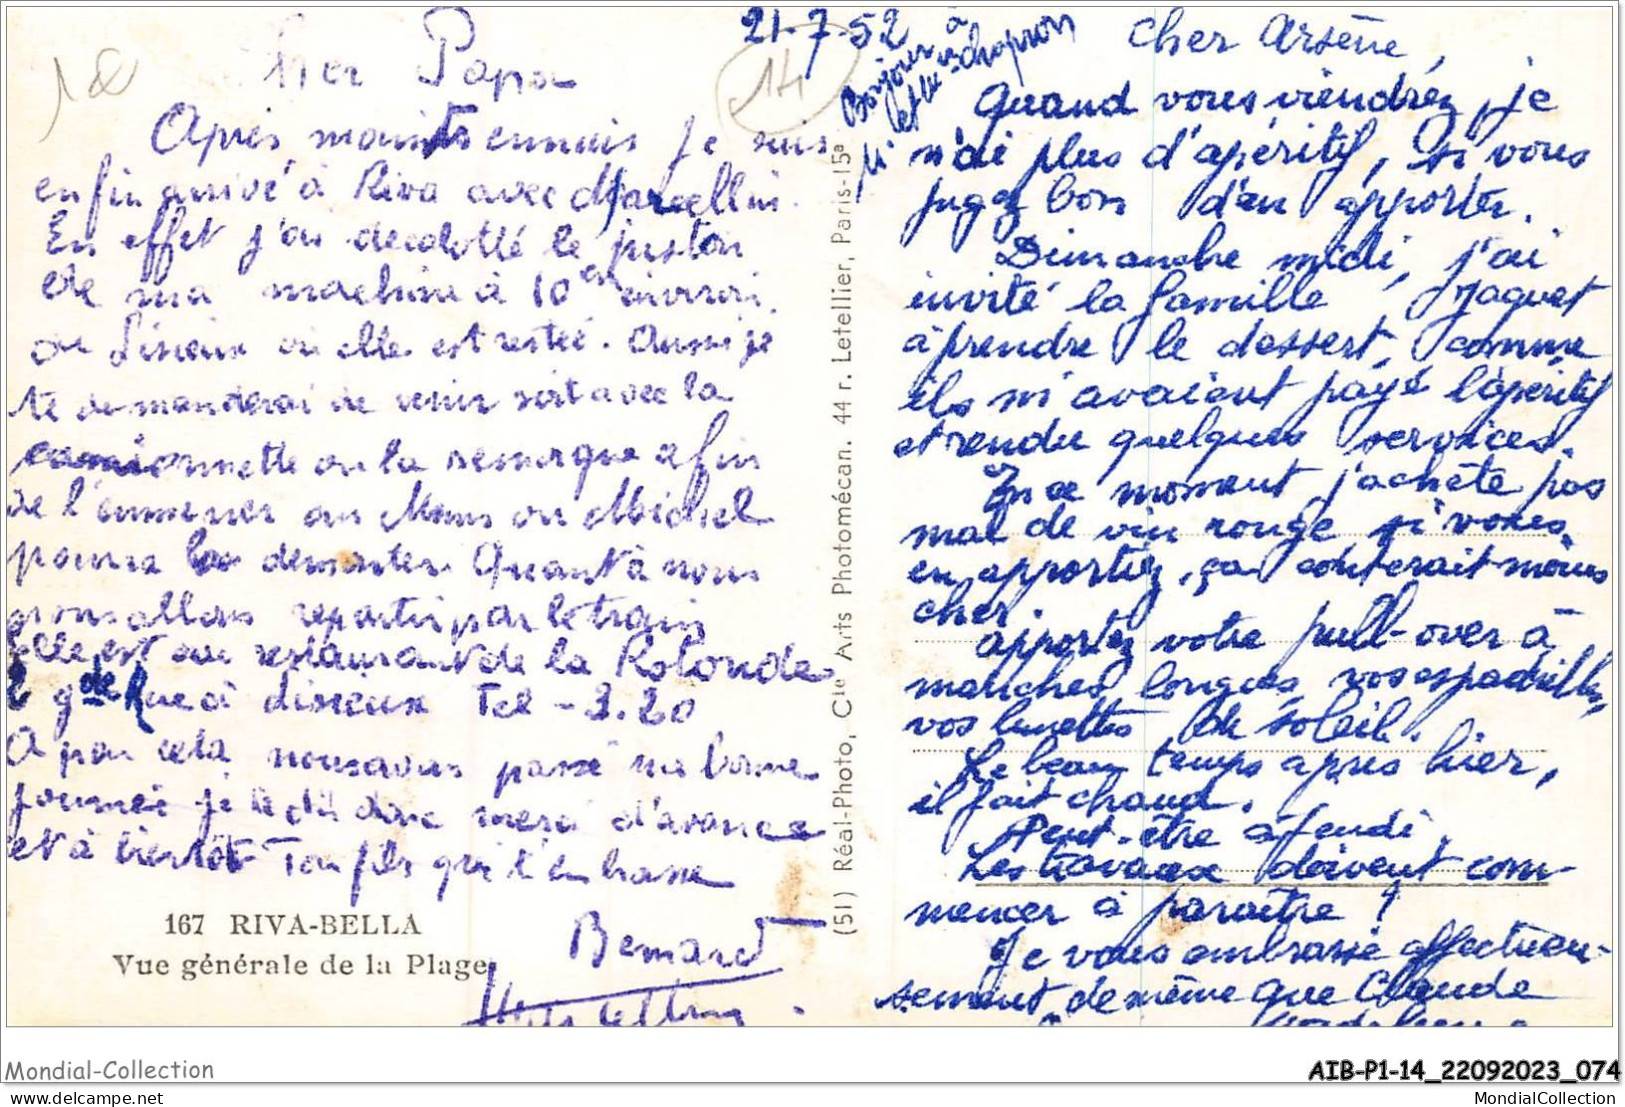 Cher Papa
Après maints ennuis je suis
enfin arrivé à Riva avec Marcellin.
En effet j'ai decalotté le piston
de ma machine à 10 environ
de Lisieux où elle est restée. Aussi je
te demanderai de venir soit avec la
camionnette ou la remorque afin
de l'emmener au Mans ou Michel
pourra la demonter. Quant à nous
nous allons repartir par le train
Elle est au restaurant de la Rotonde
2 gde Rue à Lisieux Tel - 3.20
A part cela nous avons passé une bonne
journée je te dis donc merci d'avance
et à bientôt Ton fils qui t'embrasse
Bernard
167 RIVA-BELLA
Vue générale de la Plage
14
(51) Réal-Photo, Cie Arts Photomécan. 44 r. Letellier, Paris-15e
21-7-52
Bonjour à
et Chapron
Cher Arsène,
Quand vous viendrez, je
n'ai plus d'apéritif, si vous
jugez bon d'en apporter.
Dimanche midi, j'ai
invité la famille Jaquet
à prendre le dessert, comme
ils m'avaient payé l'apéritif
et rendu quelques services.
En ce moment j'achète pas
mal de vin rouge si vous
en apportiez, ça couterait moins
cher.
Apportez votre pull-over à
manches longues, vos espadrilles,
vos lunettes de soleil.
Le beau temps après hier,
il fait chaud.
Peut-être à jeudi.
Les travaux doivent com-
mencer à paraitre !
Je vous embrasse affectueu-
sement, de même que Claude
Mondial-Collection
AIB-P1-14_22092023_074
delcampe.net
MondialCollection